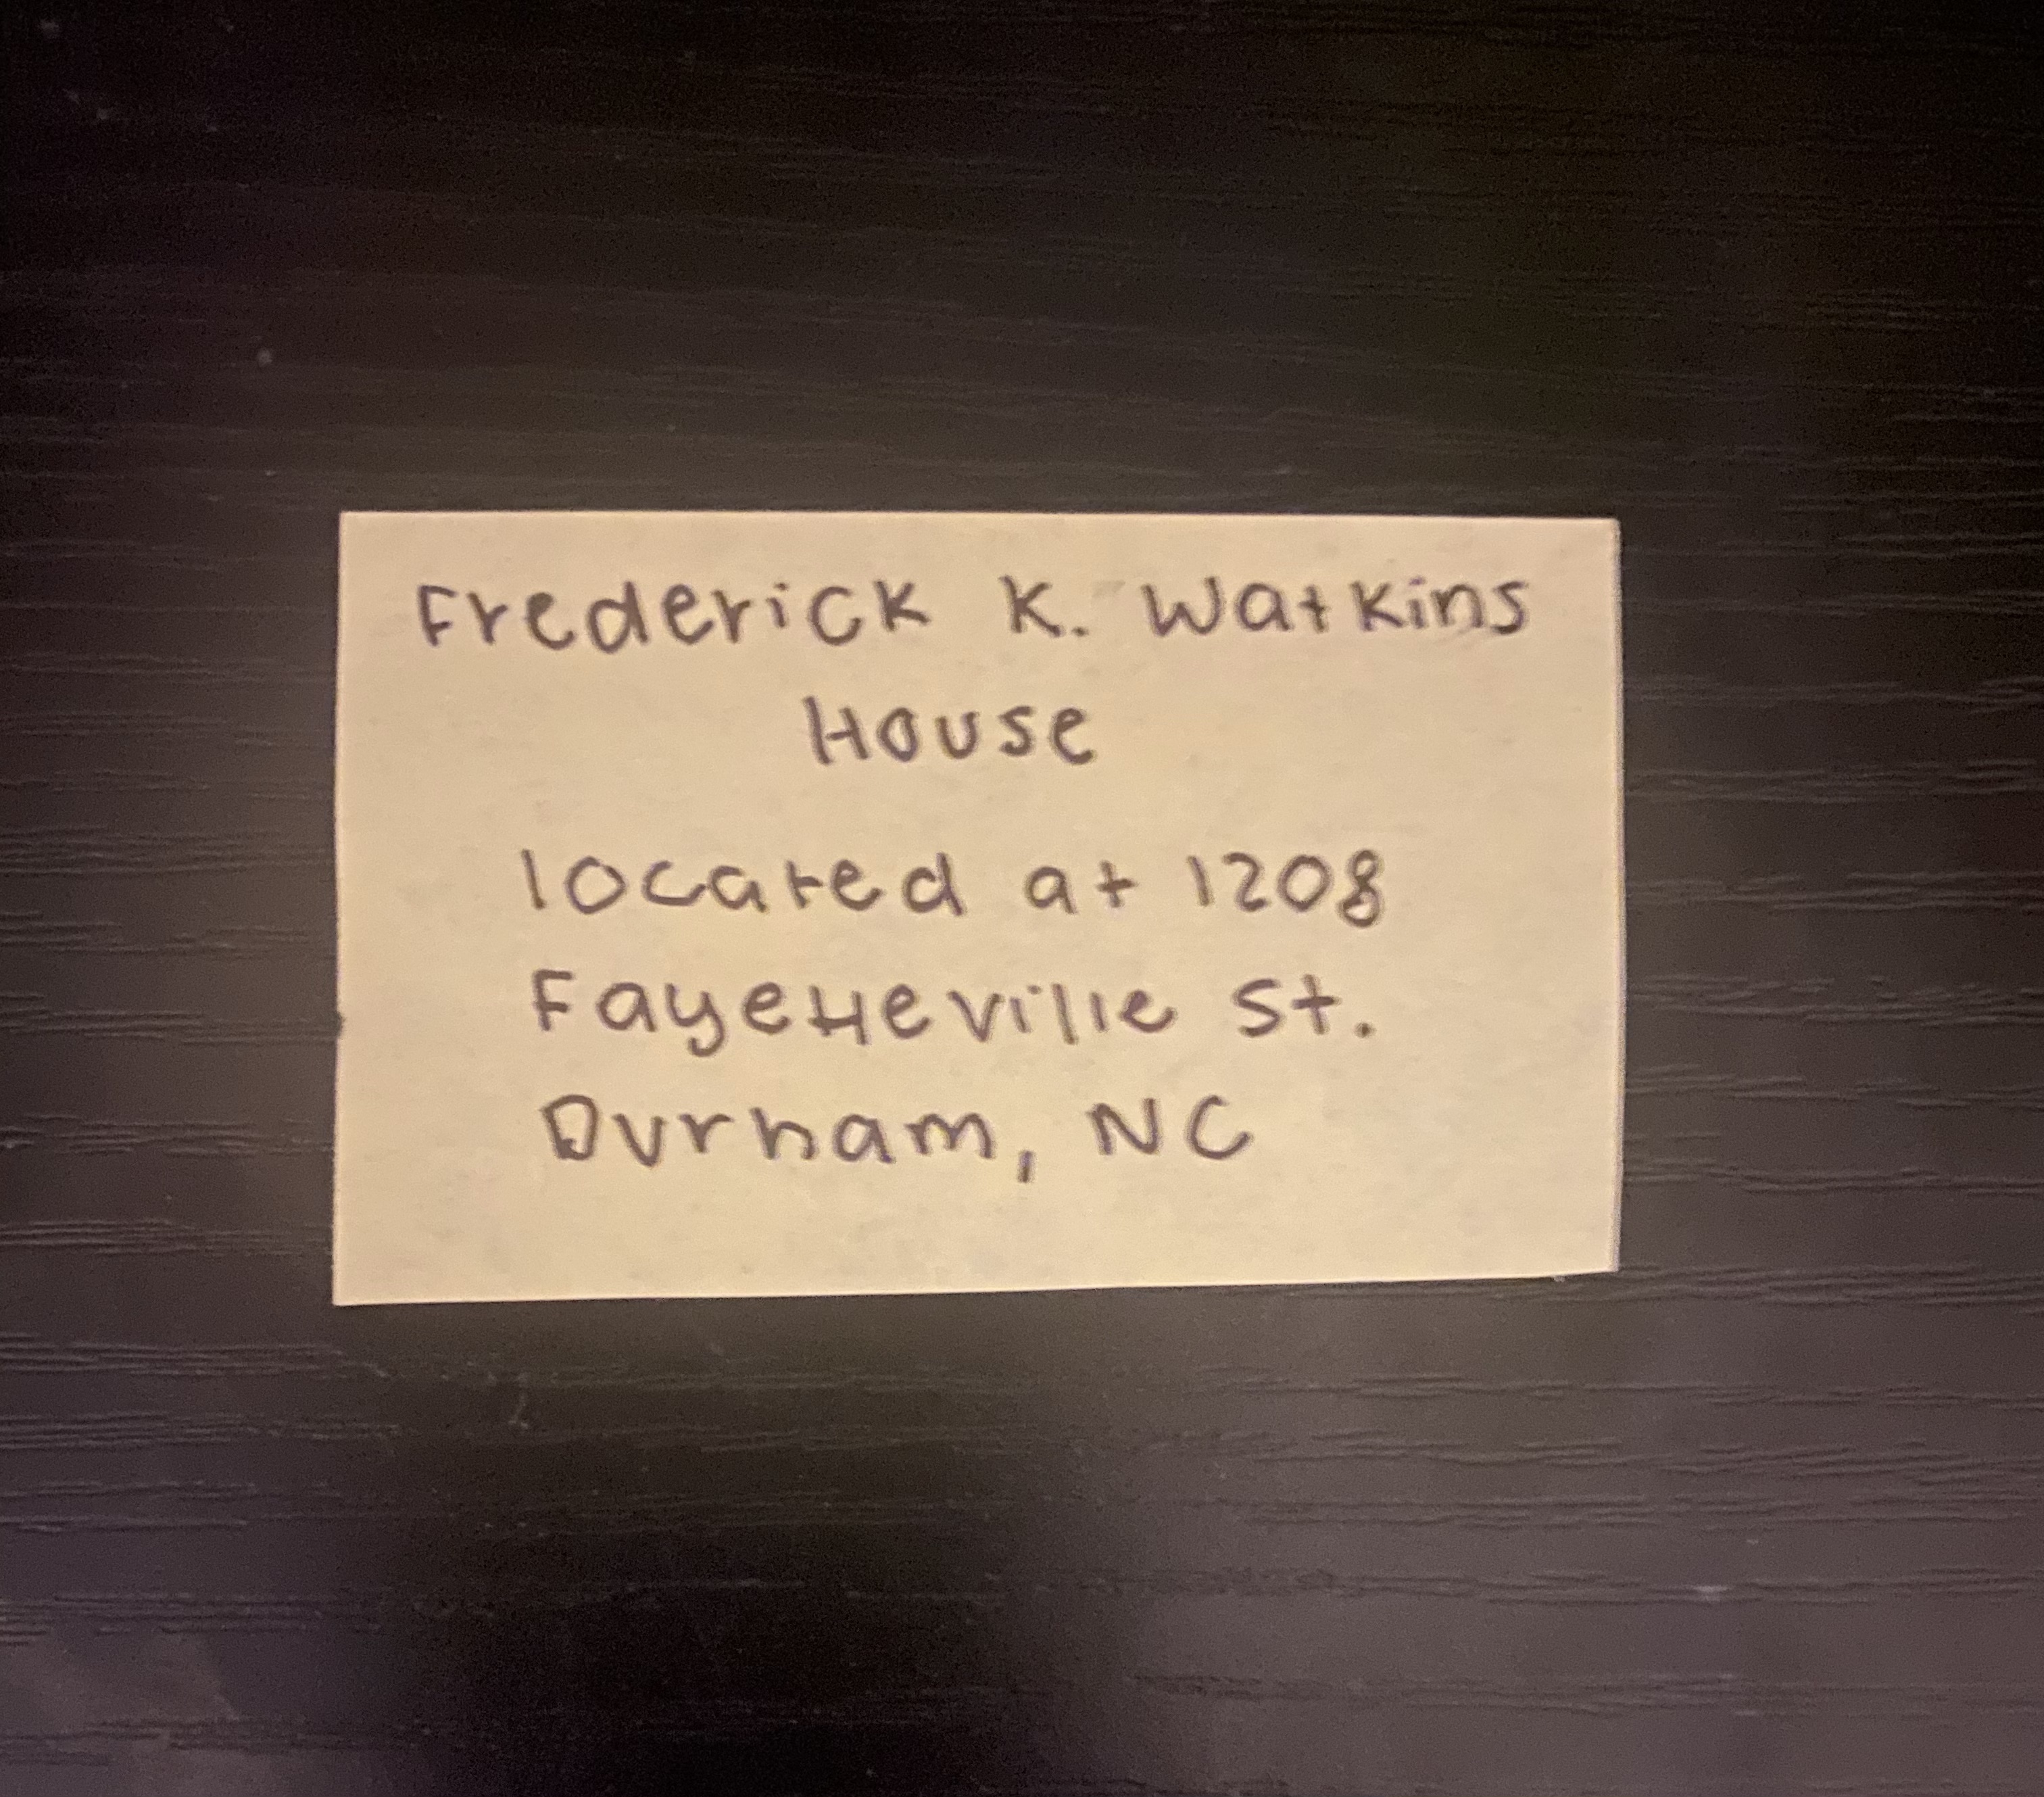 Frederick K. Watkins
House
located at 1208
Fayetteville St.
Durham, NC